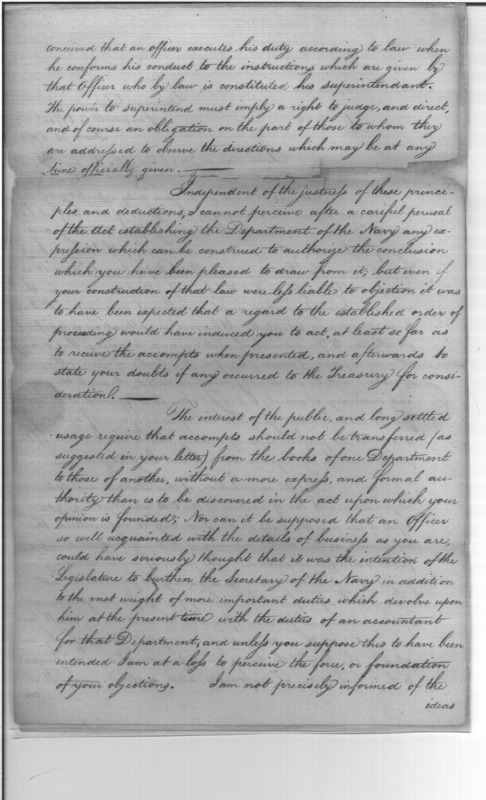 conceived that an officer executes his duty according to law when
he conforms his conduct to the instructions which are given by
that Officer who by law is constituted his superintendant.
The power to superintend must imply a right to judge, and direct,
and of course an obligation on the part of those to whom they
are addressed to observe the directions which may be at any
time officially given. —
Independent of the justness of these princi-
ples and deductions, I cannot perceive after a careful perusal
of the Act establishing the Department of the Navy any ex-
pression which can be construed to authorize the conclusion
which you have been pleased to draw from it, but even if
your construction of that law were less liable to objection it was
to have been expected that a regard to the established order of
proceeding would have induced you to act, at least so far as
to receive the accompts when presented, and afterwards to
state your doubts if any occurred to the Treasury for consi-
deration. —
The interest of the public, and long settled
usage require that accompts should not be transferred (as
suggested in your letter) from the books of one Department
to those of another, without a more express, and formal au-
thority than is to be discovered in the act upon which your
opinion is founded; Nor can it be supposed that an Officer
so well acquainted with the details of business as you are,
could have seriously thought that it was the intention of the
Legislature to burthen the Secretary of the Navy in addition
to the vast weight of more important duties which devolve upon
him at the present time with the duties of an accountant
for that Department, and unless you suppose this to have been
intended I am at a loss to perceive the force, or foundation
of your objections. I am not precisely informed of the
ideas